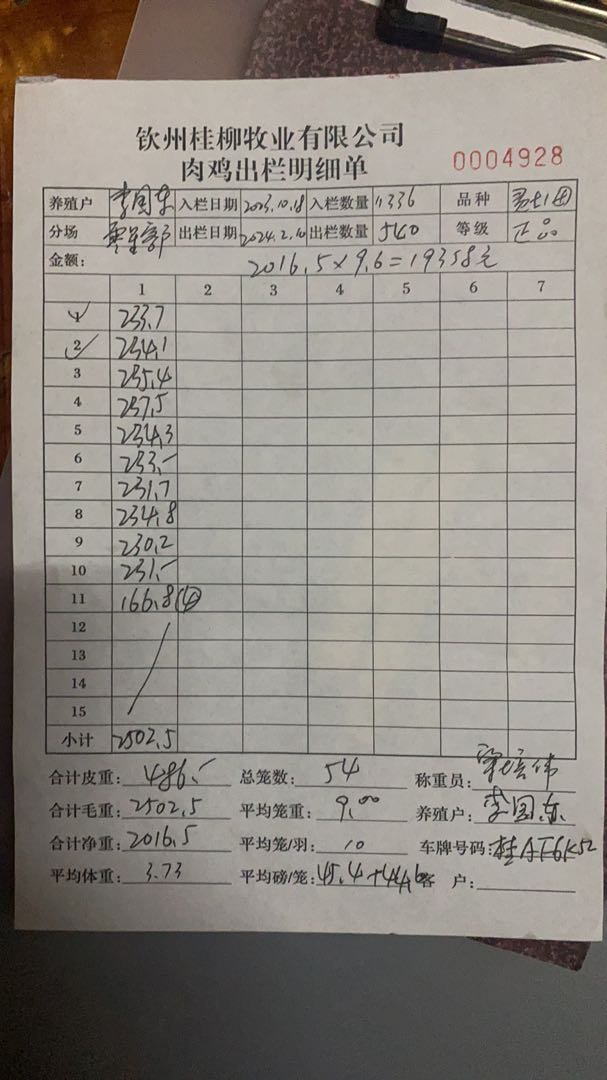 钦州桂柳牧业有限公司
肉鸡出栏明细单 0004928
养殖户 李国东 入栏日期 2023.10.18 入栏数量 11336 品种
分场 出栏日期 2024.2.10 出栏数量 540 等级 正品
金额: 2016.5×9.6=19358元
1 2 3 4 5 6 7
1 233.7
2 234.1
3 235.4
4 237.5
5 234.3
6 233.-
7 231.7
8 234.8
9 230.2
10 231.-
11 166.8(4)
12
13
14
15
小计 2502.5
合计皮重: 486.- 总笼数: 54 称重员:
合计毛重: 2502.5 平均笼重: 9.00 养殖户: 李国东
合计净重: 2016.5 平均笼/羽: 10 车牌号码: 桂AF6K52
平均体重: 3.73 平均磅/笼: 45.4+44.6 客户: